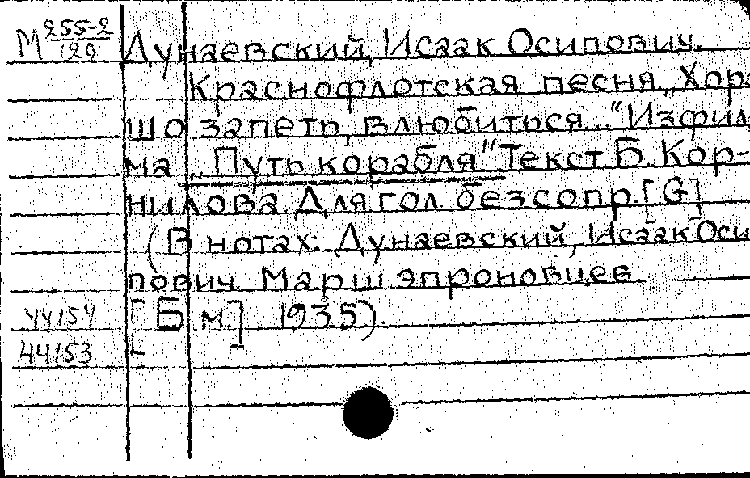 М 255-2/129 Дунаевский, Исаак Осипович.
Краснофлотская песня „Хоро
шо запеть, влюбиться..." Из фил
ма „Путь корабля" Текст Б. Кор-
нилова. Для гол. без сопр. [G]
(В нотах: Дунаевский, Исаак Оси
пович. Марш эпроновцев
44154 [Б м] 1935)
44153